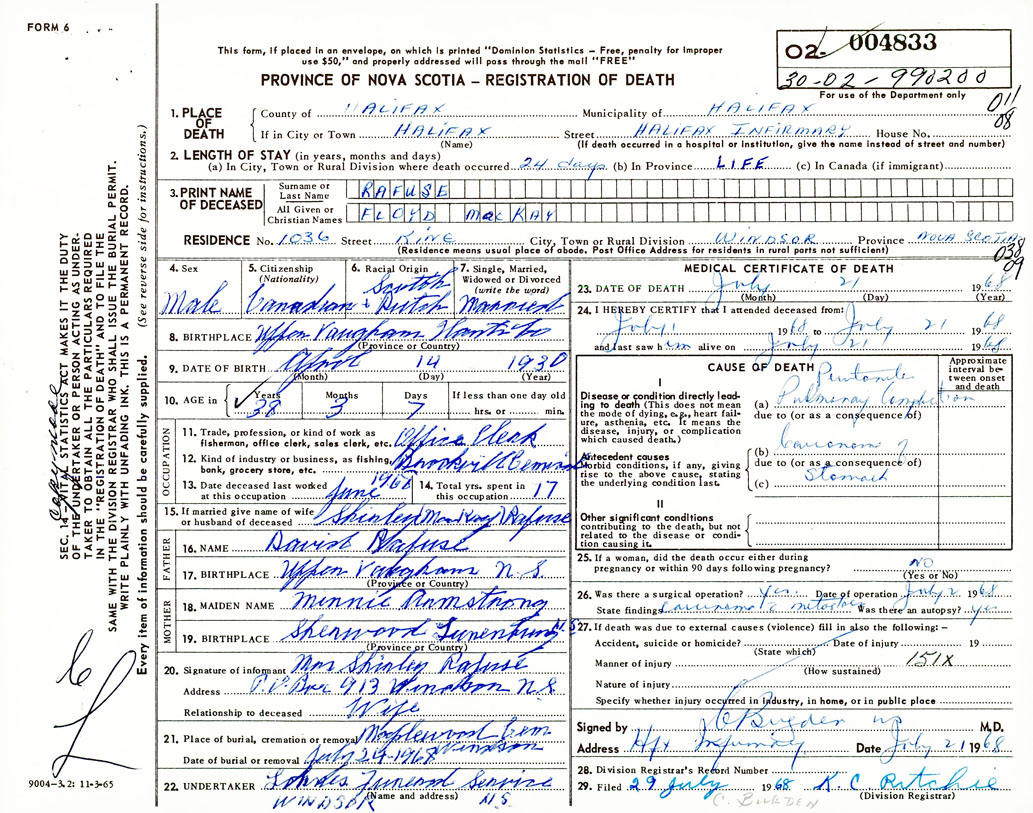 FORM 6
02- 004833
30-02-990200
For use of the Department only
011
08
This form, if placed in an envelope, on which is printed "Dominion Statistics – Free, penalty for improper
use $50," and properly addressed will pass through the mail "FREE"
PROVINCE OF NOVA SCOTIA – REGISTRATION OF DEATH
1. PLACE OF DEATH
County of HALIFAX Municipality of HALIFAX
If in City or Town HALIFAX Street HALIFAX INFIRMARY House No.
(Name) (If death occurred in a hospital or institution, give the name instead of street and number)
2. LENGTH OF STAY (in years, months and days)
(a) In City, Town or Rural Division where death occurred 24 days (b) In Province LIFE (c) In Canada (if immigrant)
3. PRINT NAME OF DECEASED
Surname or Last Name RAFUSE
All Given or Christian Names FLOYD MacKAY
RESIDENCE No. 1036 Street KING City, Town or Rural Division WINDSOR Province NOVA SCOTIA
(Residence means usual place of abode. Post Office Address for residents in rural parts not sufficient)
038
09
4. Sex Male
5. Citizenship (Nationality) Canadian
6. Racial Origin Scotch + Dutch
7. Single, Married, Widowed or Divorced (write the word) Married
8. BIRTHPLACE Upper Vaughan Hants Co
(Province or Country)
9. DATE OF BIRTH April 14 1930
(Month) (Day) (Year)
10. AGE in Years 38 Months 3 Days 7 If less than one day old hrs. or min.
OCCUPATION
11. Trade, profession, or kind of work as fisherman, office clerk, sales clerk, etc. Office Clerk
12. Kind of industry or business, as fishing, bank, grocery store, etc.
13. Date deceased last worked at this occupation June 1968
14. Total yrs. spent in this occupation 17
15. If married give name of wife or husband of deceased Shirley MacKay Rafuse
FATHER
16. NAME David Rafuse
17. BIRTHPLACE Upper Vaughan N.S.
(Province or Country)
MOTHER
18. MAIDEN NAME Minnie Armstrong
19. BIRTHPLACE Sherwood Lunenburg N.S
(Province or Country)
20. Signature of informant Mrs Shirley Rafuse
Address P.O Box 913 Windsor N.S.
Relationship to deceased Wife
21. Place of burial, cremation or removal Maplewood Cem Windsor
Date of burial or removal July 24-1968
22. UNDERTAKER Funeral Service
(Name and address)
WINDSOR N.S.
MEDICAL CERTIFICATE OF DEATH
23. DATE OF DEATH July 21 1968
(Month) (Day) (Year)
24. I HEREBY CERTIFY that I attended deceased from:
July 1 1968 to July 21 1968
and last saw him alive on July 21 1968
CAUSE OF DEATH
Approximate interval between onset and death
I
Disease or condition directly leading to death (This does not mean the mode of dying, e.g., heart failure, asthenia, etc. It means the disease, injury, or complication which caused death.)
(a) Pulmonary
due to (or as a consequence of)
Antecedent causes
Morbid conditions, if any, giving rise to the above cause, stating the underlying condition last.
(b) Carcinoma of
due to (or as a consequence of)
(c) Stomach
II
Other significant conditions
contributing to the death, but not related to the disease or condition causing it.
25. If a woman, did the death occur either during pregnancy or within 90 days following pregnancy? NO
(Yes or No)
26. Was there a surgical operation? Yes. Date of operation July 2 1968
State findings carcinoma Was there an autopsy? yes
27. If death was due to external causes (violence) fill in also the following: –
Accident, suicide or homicide? Date of injury 19
(State which)
Manner of injury 151X
(How sustained)
Nature of injury
Specify whether injury occurred in industry, in home, or in public place
Signed by C Burden M.D.
Address Hfx Infirmary Date July 21 1968
28. Division Registrar's Record Number
29. Filed 29 July 1968 K. C. Ritchie
(Division Registrar)
C. BURDEN
SEC. 14 – VITAL STATISTICS ACT MAKES IT THE DUTY
OF THE UNDERTAKER OR PERSON ACTING AS UNDER-
TAKER TO OBTAIN ALL THE PARTICULARS REQUIRED
IN THE "REGISTRATION OF DEATH" AND TO FILE THE
SAME WITH THE DIVISION REGISTRAR WHO SHALL ISSUE THE BURIAL PERMIT.
WRITE PLAINLY WITH UNFADING INK. THIS IS A PERMANENT RECORD.
Every item of information should be carefully supplied. (See reverse side for instructions.)
9004-3.2: 11-3-65